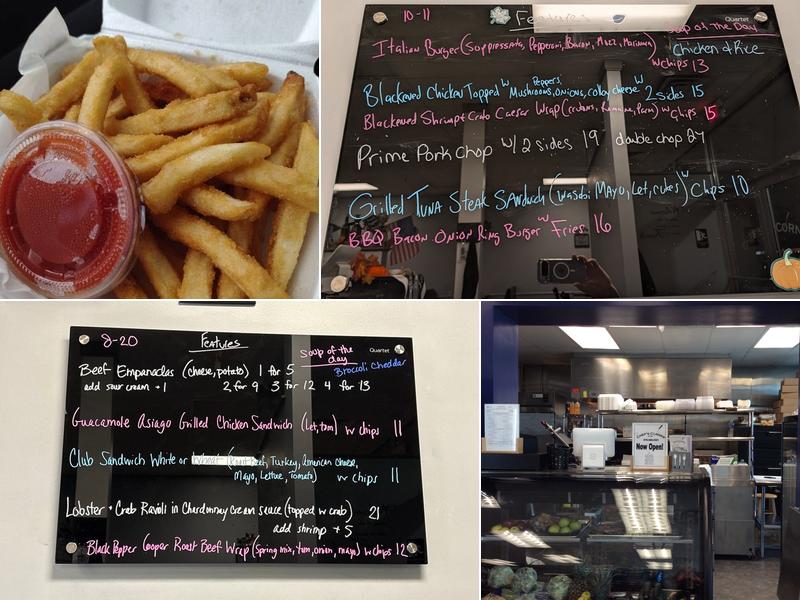 10-11
Features
Quartet
Soup of The Day
Italian Burger (Soppressata, Pepperoni, Bacon, Mozz, Marinara)
w chips 13
Chicken & Rice
Blackened Chicken Topped w Peppers, Mushrooms, onions, colby cheese w 2 sides 15
Blackened Shrimp + Crab Caesar Wrap (croutons, Romaine, Parm) w Chips 15
Prime Pork chop w/ 2 sides 19 double chop 27
Grilled Tuna Steak Sandwich (wasabi Mayo, Let, cukes) w Chips 10
BBQ Bacon Onion Ring Burger w Fries 16
8-20
Features
Soup of the day
Quartet
Broccoli Cheddar
Beef Empanadas (cheese, potato) 1 for 5
add sour cream +1 2 for 9 3 for 12 4 for 13
Guacamole Asiago Grilled Chicken Sandwich (Let, tom) w chips 11
Club Sandwich White or Wheat (Roast Beef, Turkey, American Cheese,
Mayo, Lettuce, Tomato) w chips 11
Lobster + Crab Ravioli in Chardonnay Cream sauce (topped w crab) 21
add shrimp + 5
Black Pepper Cooper Roast Beef Wrap (spring mix, tom, onion, mayo) w chips 12
Now Open!